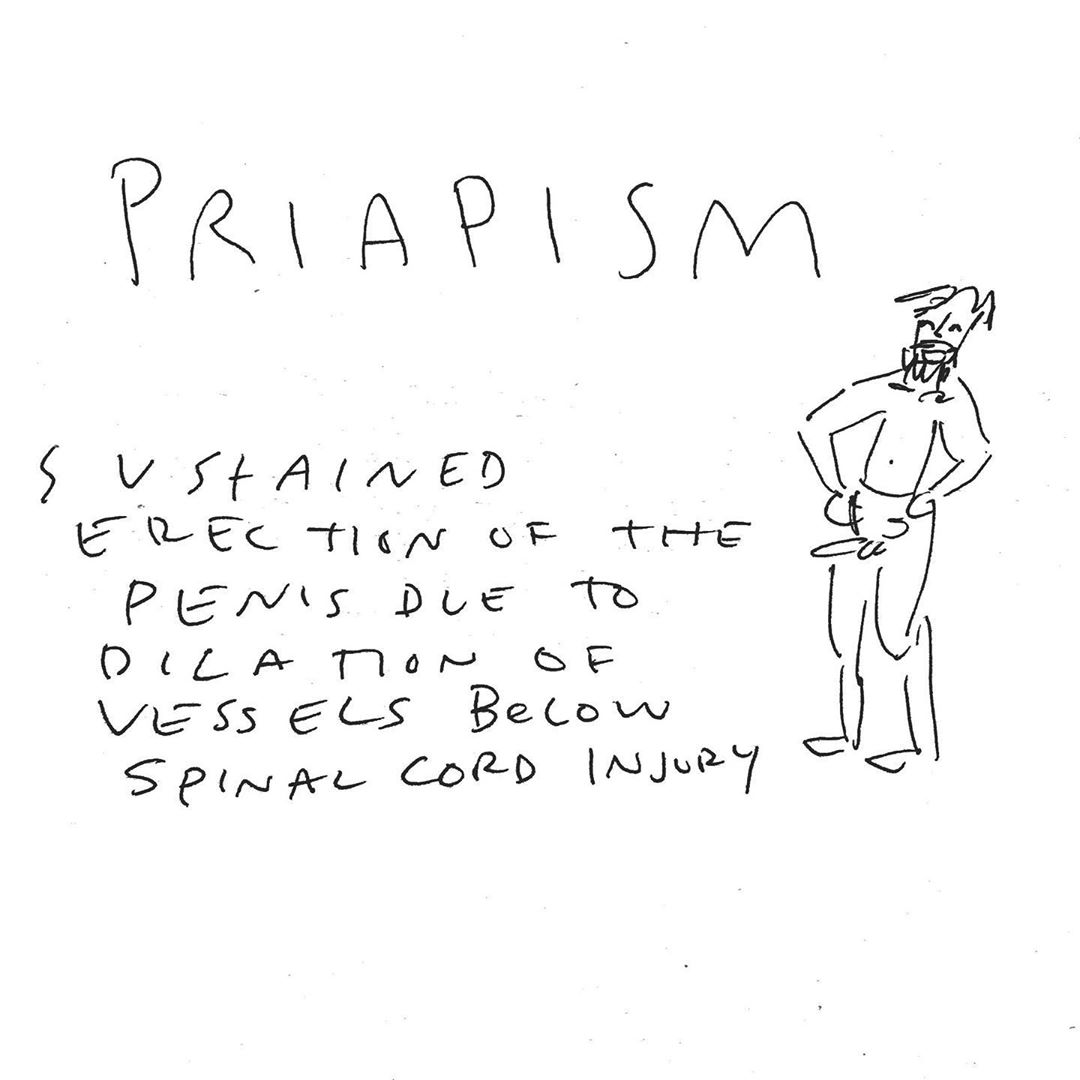 PRIAPISM
SUSTAINED
ERECTION OF THE
PENIS DUE TO
DILATION OF
VESSELS BELOW
SPINAL CORD INJURY